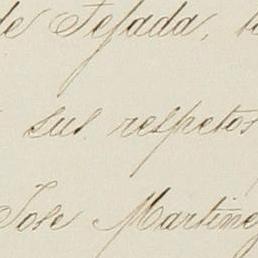 de Tejada,
sus respetos
Jose Martinez